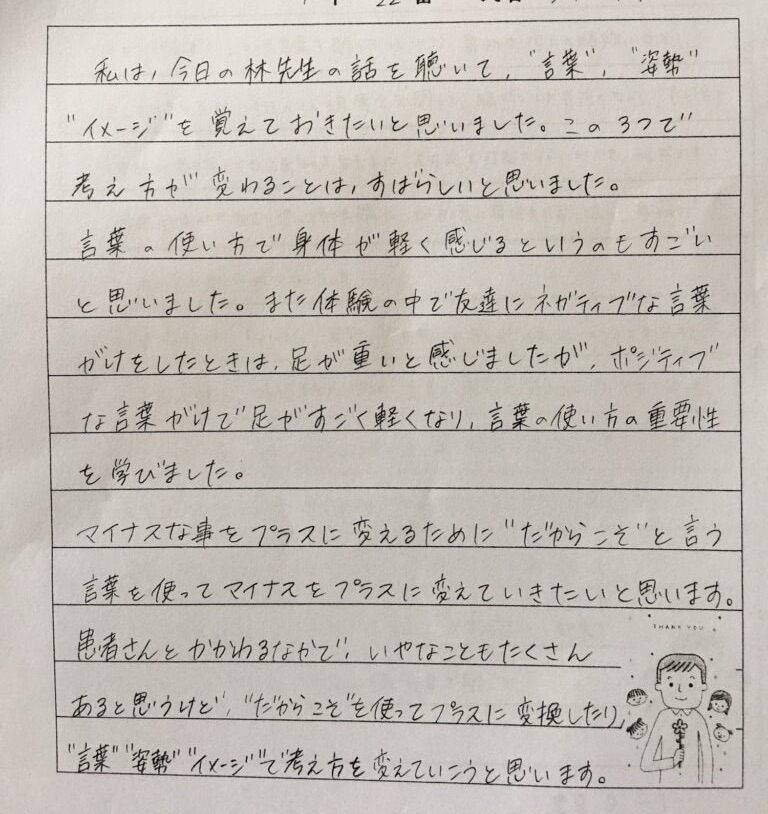 私は,今日の林先生の話を聴いて,"言葉","姿勢"
"イメージ"を覚えておきたいと思いました。この3つで
考え方が変わることは,すばらしいと思いました。
言葉の使い方で身体が軽く感じるというのもすごい
と思いました。また体験の中で友達にネガティブな言葉
がけをしたときは,足が重いと感じましたが,ポジティブ
な言葉がけで足がすごく軽くなり,言葉の使い方の重要性
を学びました。
マイナスな事をプラスに変えるために"だからこそ"と言う
言葉を使ってマイナスをプラスに変えていきたいと思います。
患者さんとかかわるなかで,いやなこともたくさん
THANK YOU
あると思うけど,"だからこそ"を使ってプラスに変換したり,
"言葉""姿勢""イメージ"で考え方を変えていこうと思います。